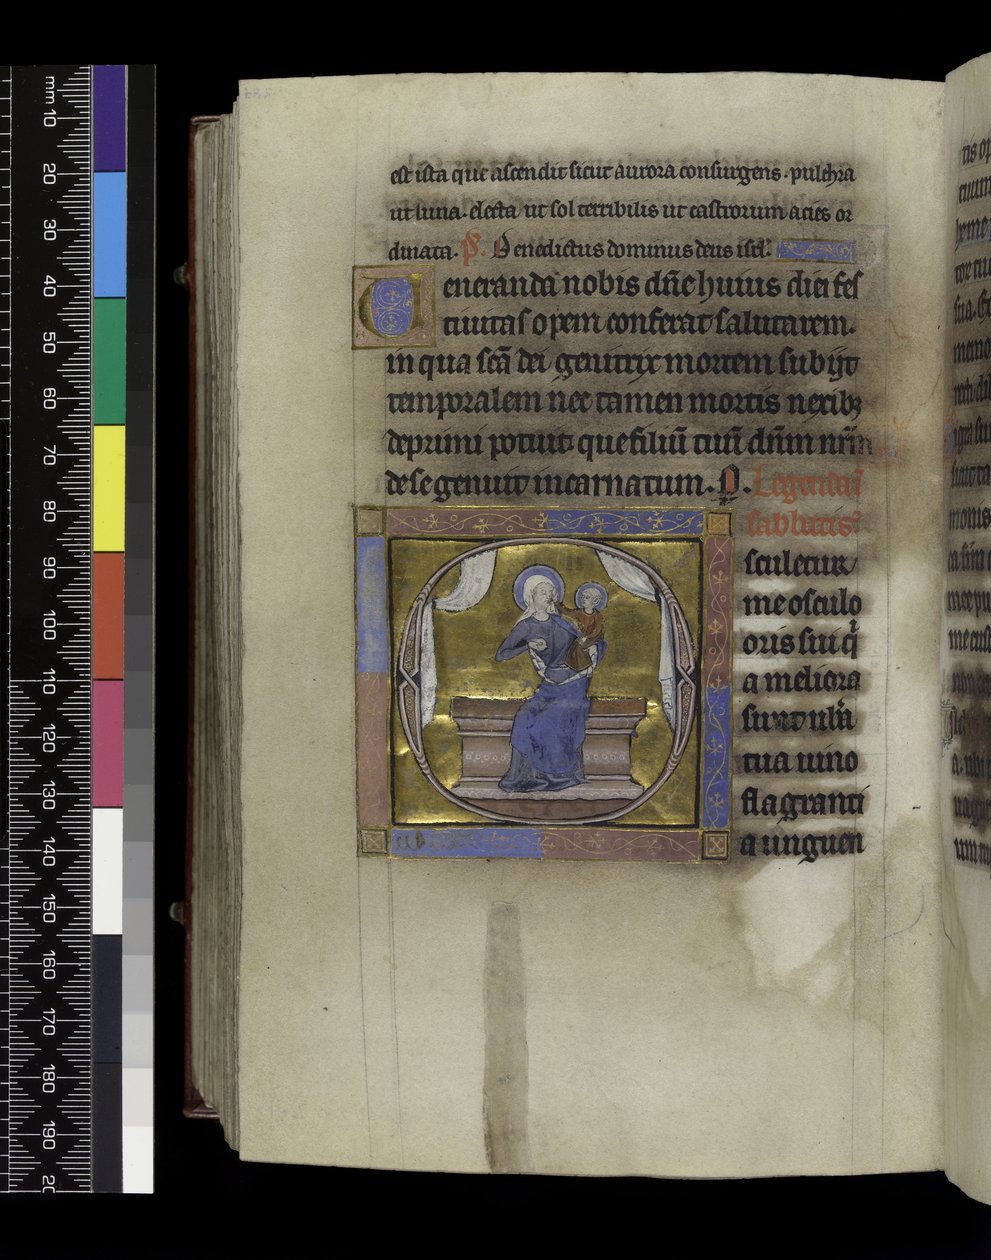 est ista que ascendit sicut aurora consurgens. pulchra
ut luna. electa ut sol terribilis ut castrorum acies or
dinata. Ps. Benedictus dominus deus isrl'.
Veneranda nobis dñe huius diei fes
tiuitas opem conferat salutarem.
in qua scã dei genitrix mortem subijt
temporalem nec tamen mortis nexibz
deprimi potuit que filiũ tuũ dñm nrm̃
de se genuit incarnatum. Legendus
sabbatis
Osculetur
me osculo
oris sui q̇
a meliora
sunt ub̃a
tua uino
flagranti
a unguen
mm 10
20
30
40
50
60
70
80
90
100
110
120
130
140
150
160
170
180
190